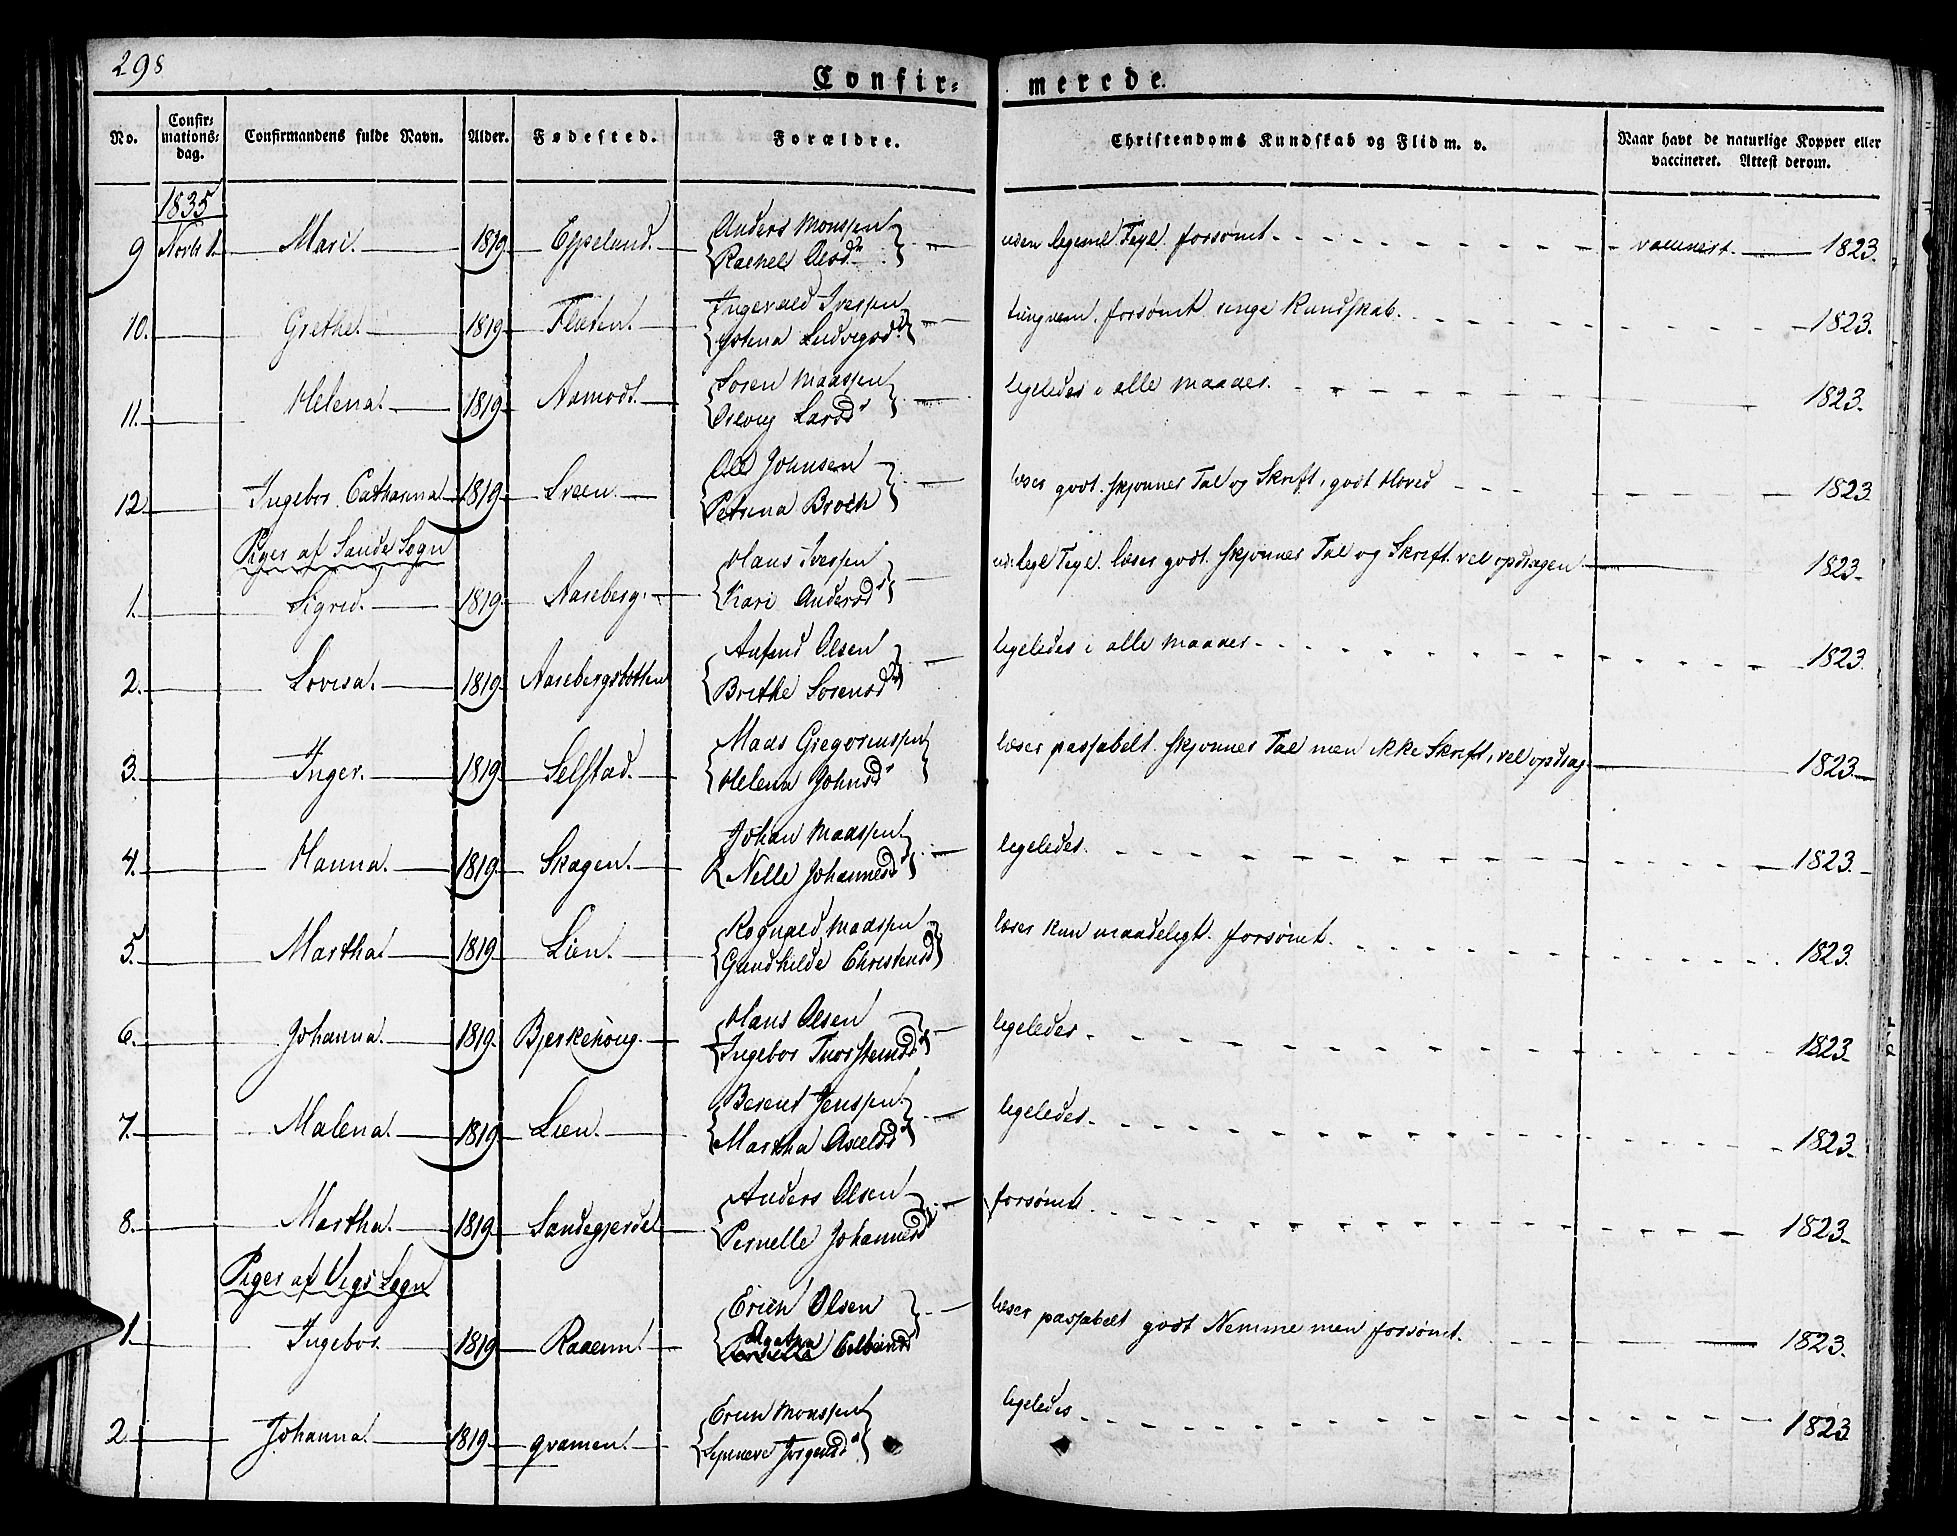 298
Confir= merede.
No. Confir=mations=dag. Confirmandens fulde Navn. Alder. Fødested. Forældre. Christendoms Kundskab og Flid m. v. Naar havt de naturlige Kopper eller vaccineret. Attest derom.
1835
9 Mari. 1819 Espeland. Anders Monssen
Rachel Olsd. uden legeml. Feyl. forsømt vaccinert. 1823.
10. Grethe. 1819 Fladen. Ingevald Iverssen
Ludvigsd. tungnem. forsømt ringe Kundskab. 1823.
11. Helena. 1819 Aamodt. Soren Maassen
Larsd. ligeledes i alle maader. 1823.
12. Ingebor Catharina 1819 Sveen. Ole Johnsen
Petrina Broch læser godt. skjønner Tal og Skrift, godt Hoved 1823.
Piger af Sande Sogn
1. Sigrid. 1819 Aaseberg. Hans Iverssen
Kari Andersd. ud: legl Feyl. læser godt. skjønner Tal og Skrift. vel opdragen. 1823
2. Lovisa. 1819 Aasebergsbotten Anfind Olsen
Brethe Sorensd. ligeledes i alle maader. 1823.
3. Inger. 1819 Selstad. Mads Gregoriussen
Helena Johnsd. læser passabelt. skjønner Tal men ikke Skrift, vel opdrag. 1823.
4. Hanna. 1819 Skagen. Johan Maassen
Nille Johannesd. ligeledes. 1823.
5. Martha 1819 Lien. Rognald Maassen
Gundhilde Christensd. læser kun maadeligt. forsømt. 1823.
6. Johanna. 1819 Bjerkehoug. Hans Olsen
Ingebor Thorsteinsd. ligeledes. 1823
7. Malena. 1819 Lien. Berent Jenssen
Martha Axelsd. ligeledes. 1823.
8. Martha. 1819 Sandegjerdet Anders Olsen
Pernelle Johannesd. forsømt 1823
Piger af Vigs Sogn
1. Ingebor. 1819 Raaenn. Erich Olsen
Agatha læser passabelt godt Nemme men forsømt. 1823.
2. Johanna. 1819 qvamen. Erich Monssen
Synneve Jørgensd. ligeledes 1823.